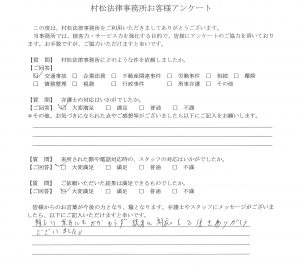 村松法律事務所お客様アンケート
この度は、村松法律事務所をご利用いただきましてありがとうございます。
当事務所では、接客力・サービス力を強化する目的で、皆様にアンケートのご協力を頂いております。お手数ですが、ご協力いただけますと幸いです。
【質 問】 村松法律事務所にどのような件を依頼しましたか。
【ご回答】 ☑ 交通事故 □ 企業法務 □ 不動産関連事件 □ 労働事件 □ 相続 □ 離婚
□ 債務整理 □ 税務 □ 行政事件 □ 刑事弁護 □ その他
【質 問】 弁護士の対応はいかがでしたか。
【ご回答】 ☑ 大変満足 □ 満足 □ 普通 □ 不満
※その他、お気づきになられた点やご感想等がございましたら以下にご記入をお願いします。
【質 問】 来所された際や電話対応時の、スタッフの対応はいかがでしたか。
【ご回答】 ☑ 大変満足 □ 満足 □ 普通 □ 不満
【質 問】 ご依頼いただいた結果は満足できるものでしたか。
【ご回答】 ☑ 大変満足 □ 満足 □ 普通 □ 不満
皆様からのお言葉が今後の力となり、糧となります。弁護士やスタッフにメッセージがございましたら、以下にご記入いただけますと幸いです。
難しい 案件にもかかわらず 誠実に 対応 して頂きありがとう
ございました。